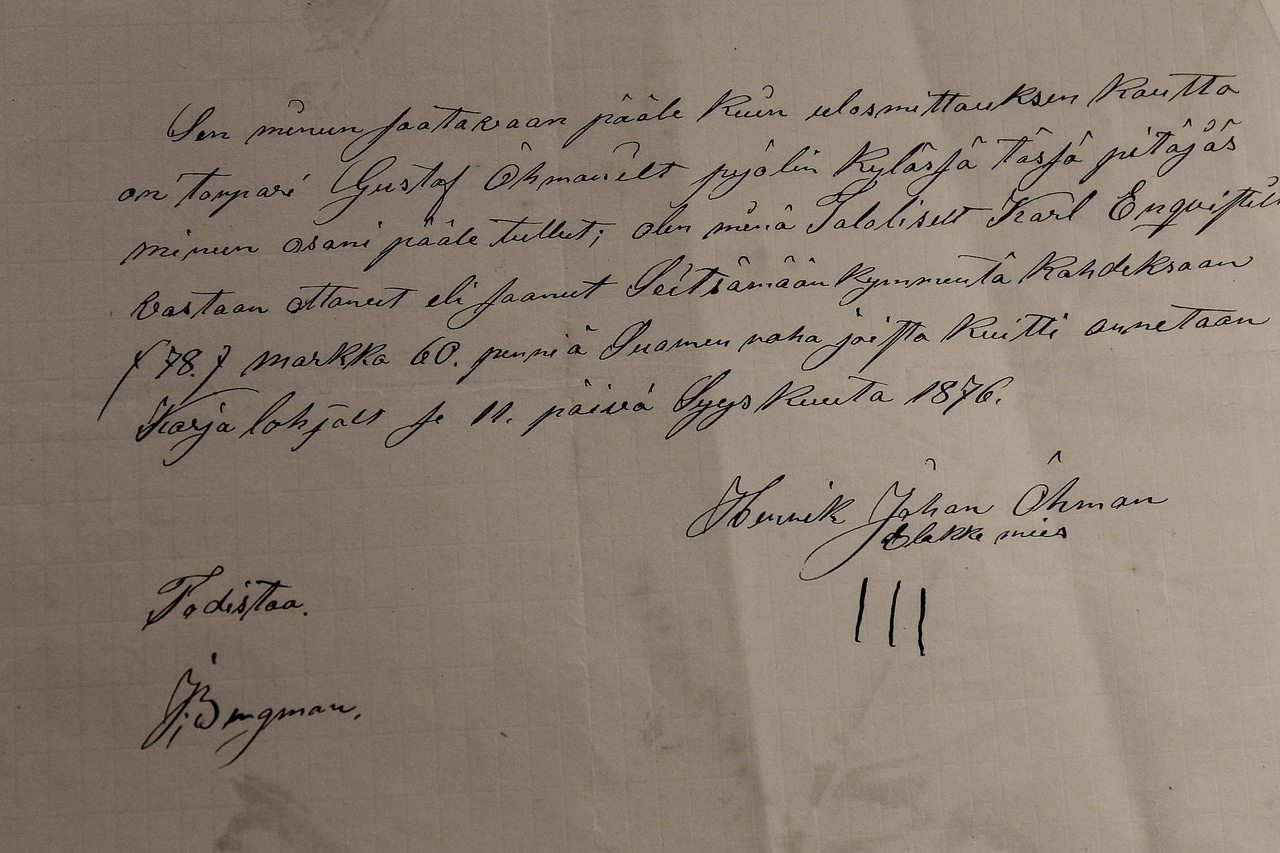 Sen minun saatavaan pääle kuin ulosmittauksen kautta
on torpari Gustaf Öhmanilt pyölin kylässä tässä pitäjäs
minun osani pääle tullut; olen minä Talolliselt Karl Enqvistilt
vastaan ottanut eli saanut Seitsämään kymmentä kahdeksaan
(78.) markka 60. penniä Suomen raha joista kuitti annetaan
Karjalohjalt se 11. päivä Syys kuuta 1876.
Henrik Johan Öhman
Elakke mies
III
Todistaa.
J. Bergman.